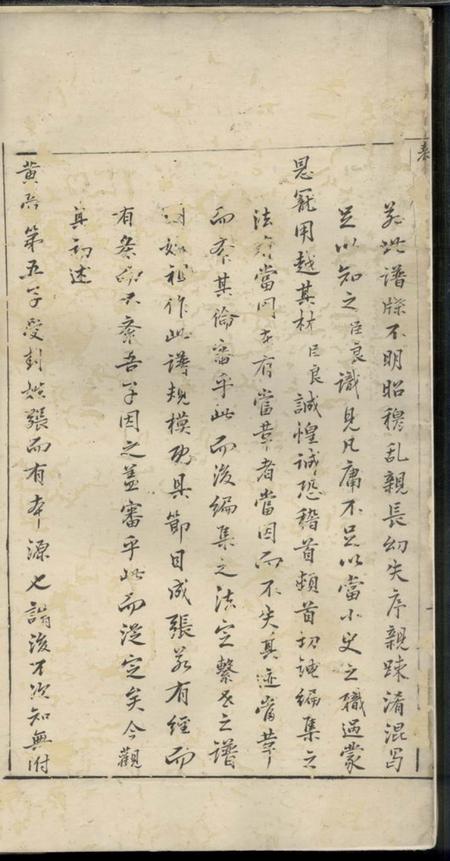 表
於此譜牒不明昭穆乱親長幼失序親踈淆混寫
足以知之臣良識見凡庸不足以當小史之職過蒙
恩寵用越其材臣良誠惶誠恐稽首頓首初編集之
法當因者當革者當因而不失其迹當革
而本其倫審乎此而後編集之法定繫世之譜
如祖作此譜規模功具節目成張若有經而
有条不紊吾子因之盖審乎此而後定矣今觀
其初述
黄帝第五子受封於張而有本源也謂後才次知無附